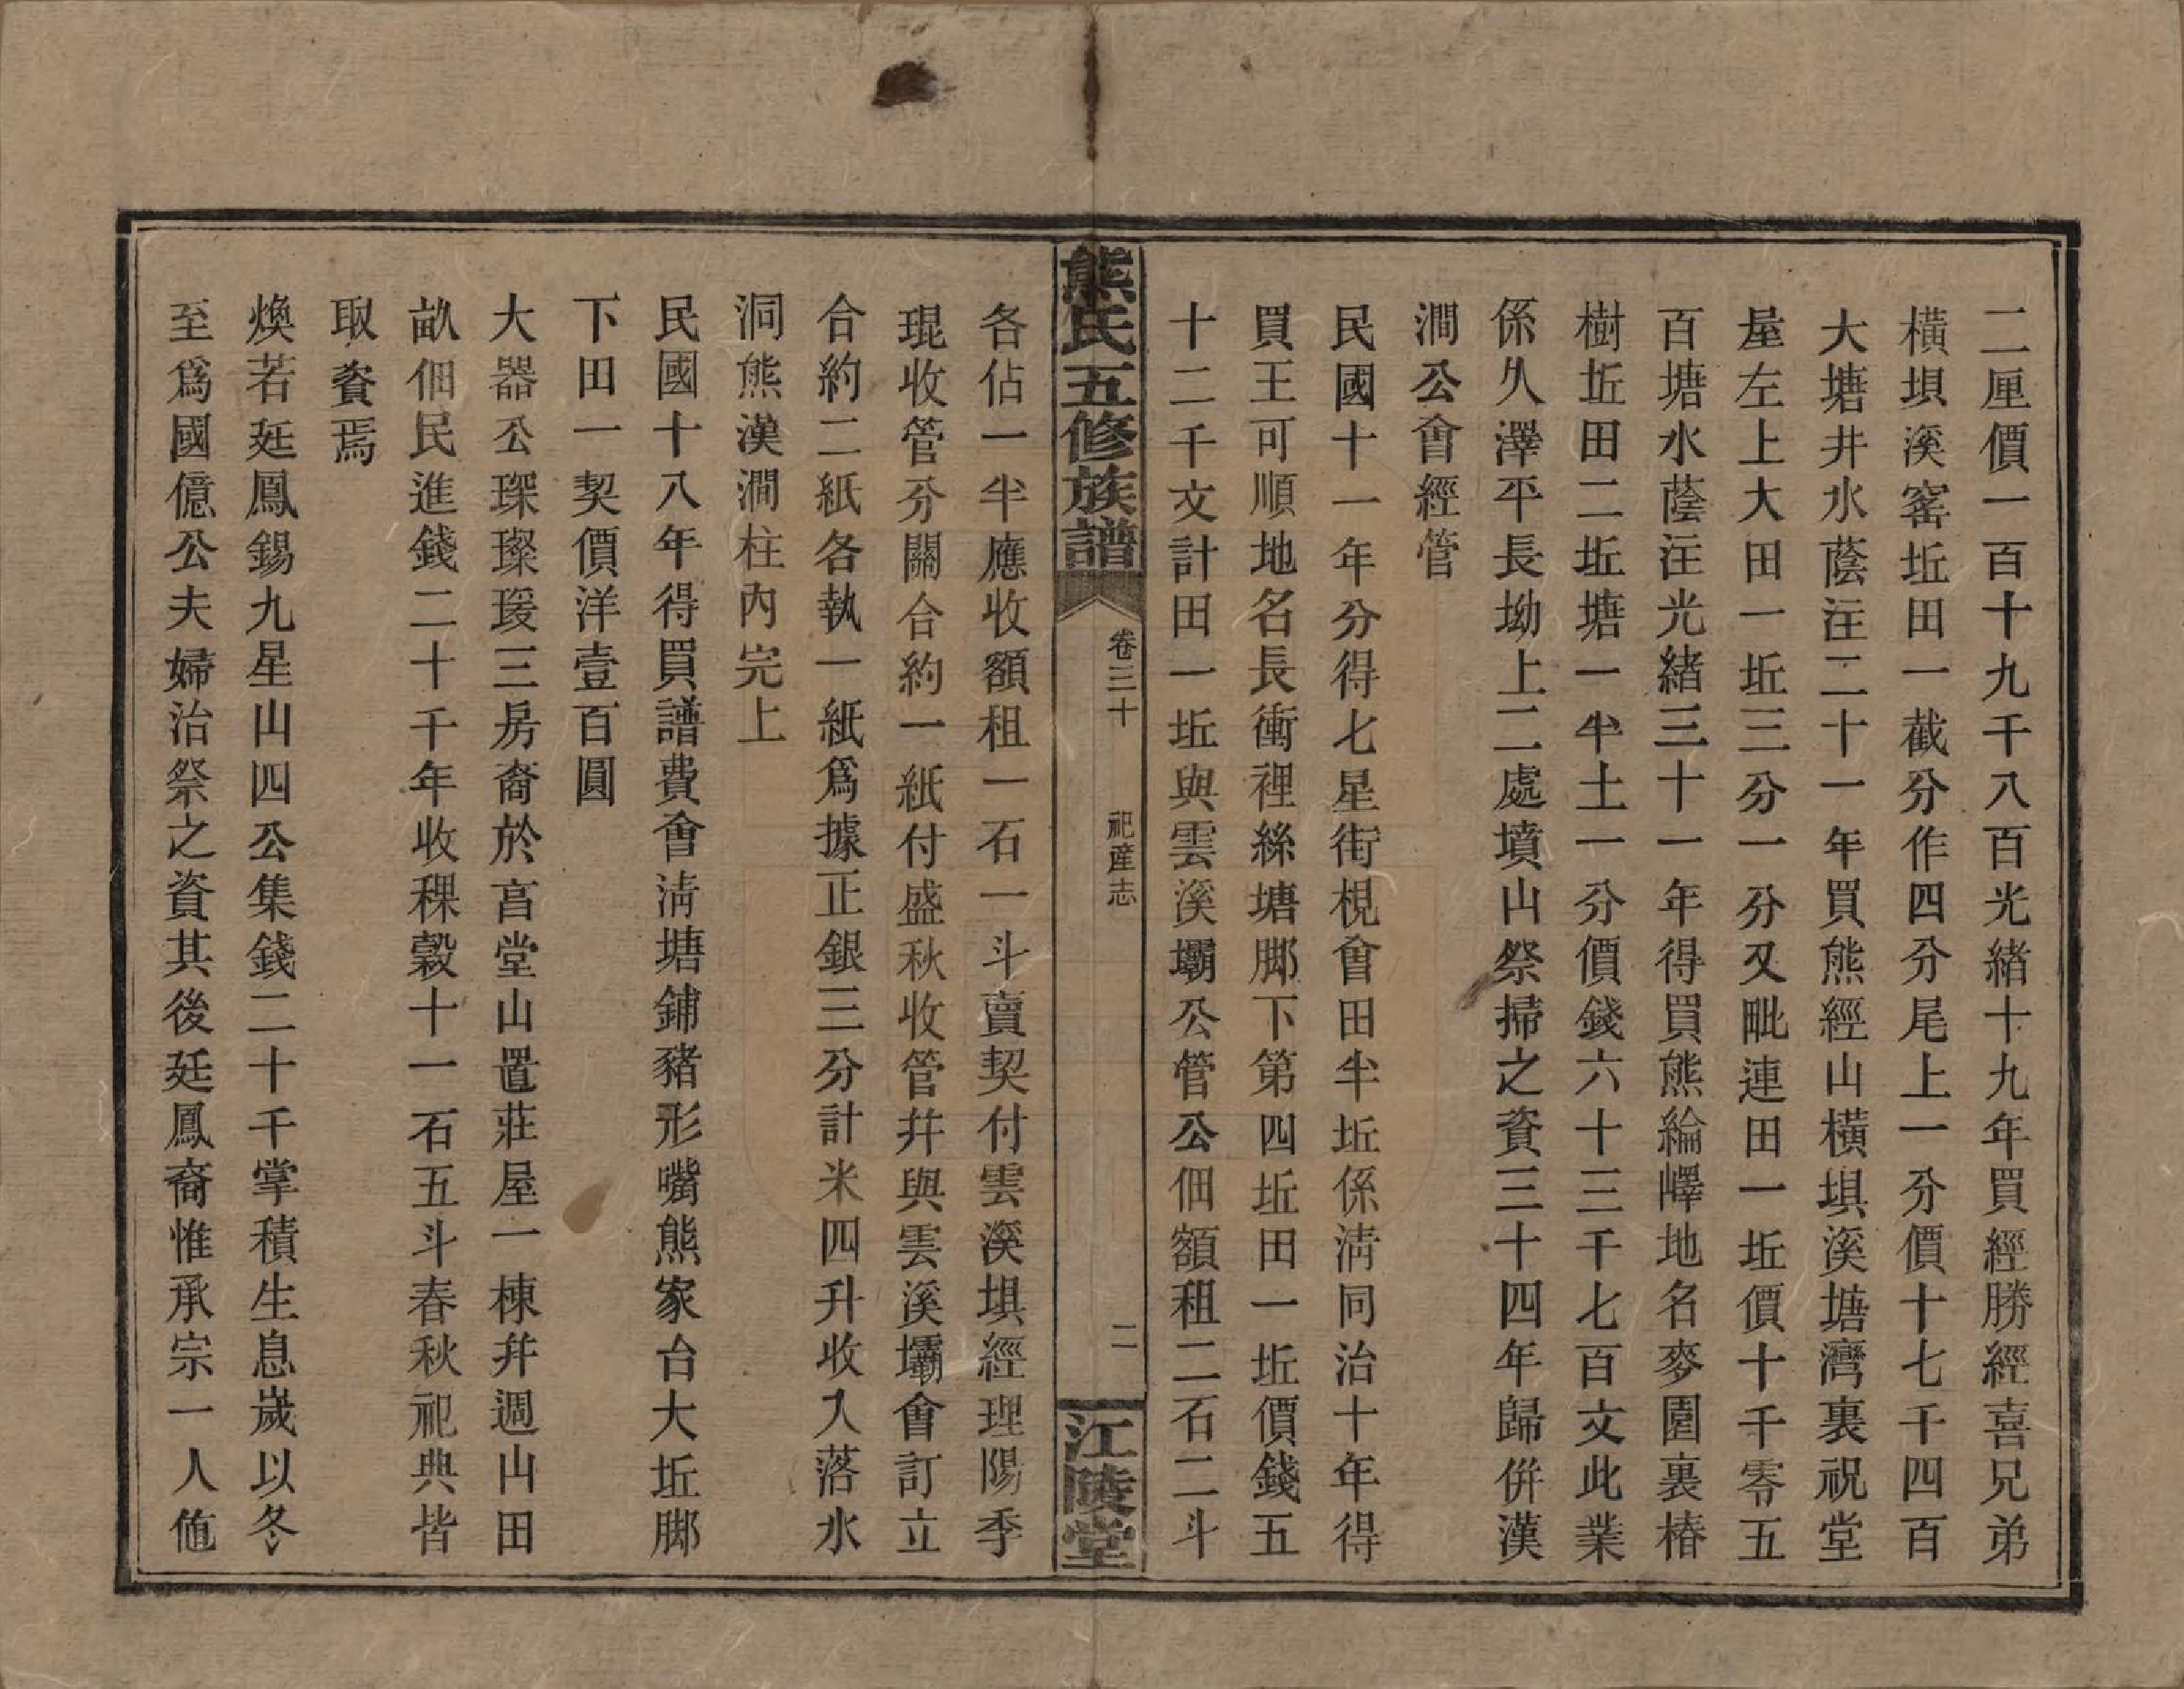 二厘價一百十九千八百光緒十九年買經勝經喜兄弟
橫垻溪窰坵田一截分作四分尾上一分價十七千四百
大塘井水蔭注二十一年買熊經山橫垻溪塘灣裏祝堂
屋左上大田一坵三分一分又毗連田一坵價十千零五
百塘水蔭注光緒三十一年得買熊綸嶧地名麥園裏椿
樹坵田二坵塘一半土一分價錢六十三千七百文此業
係久澤平長坳上二處墳山祭掃之資三十四年歸併漢
澗公會經管
民國十一年分得七星街梘會田半坵係淸同治十年得
買王可順地名長衝裡絲塘脚下第四坵田一坵價錢五
十二千文計田一坵與雲溪壩公管公佃額租二石二斗
熊氏五修族譜
卷三十
祀產志
二
江陵堂
各佔一半應收額租一石一斗賣契付雲溪垻經理陽季
琨收管分關合約一紙付盛秋收管幷與雲溪壩會訂立
合約二紙各執一紙爲據正銀三分計米四升收入落水
洞熊漢澗柱內完上
民國十八年得買譜費會淸塘鋪豬形嘴熊家台大坵脚
下田一契價洋壹百圓
大器公琛璨瑗三房裔於官堂山置莊屋一棟幷週山田
畝佃民進錢二十千年收稞穀十一石五斗春秋祀典皆
取資焉
煥若廷鳳錫九星山四公集錢二十千掌積生息歲以冬
至爲國億公夫婦治祭之資其後廷鳳裔惟承宗一人他